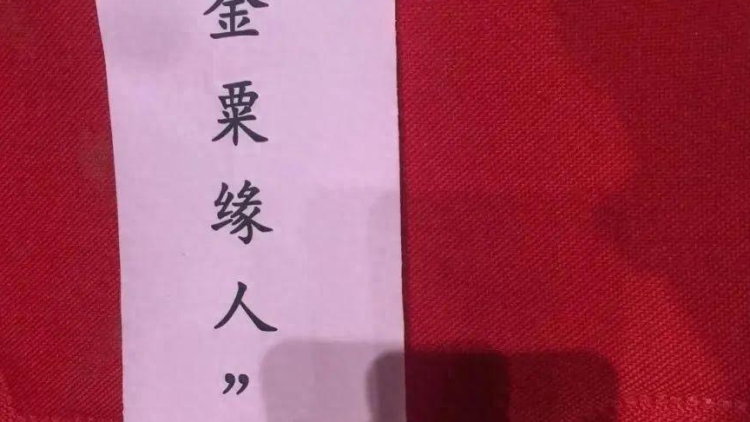 金粟缘人”